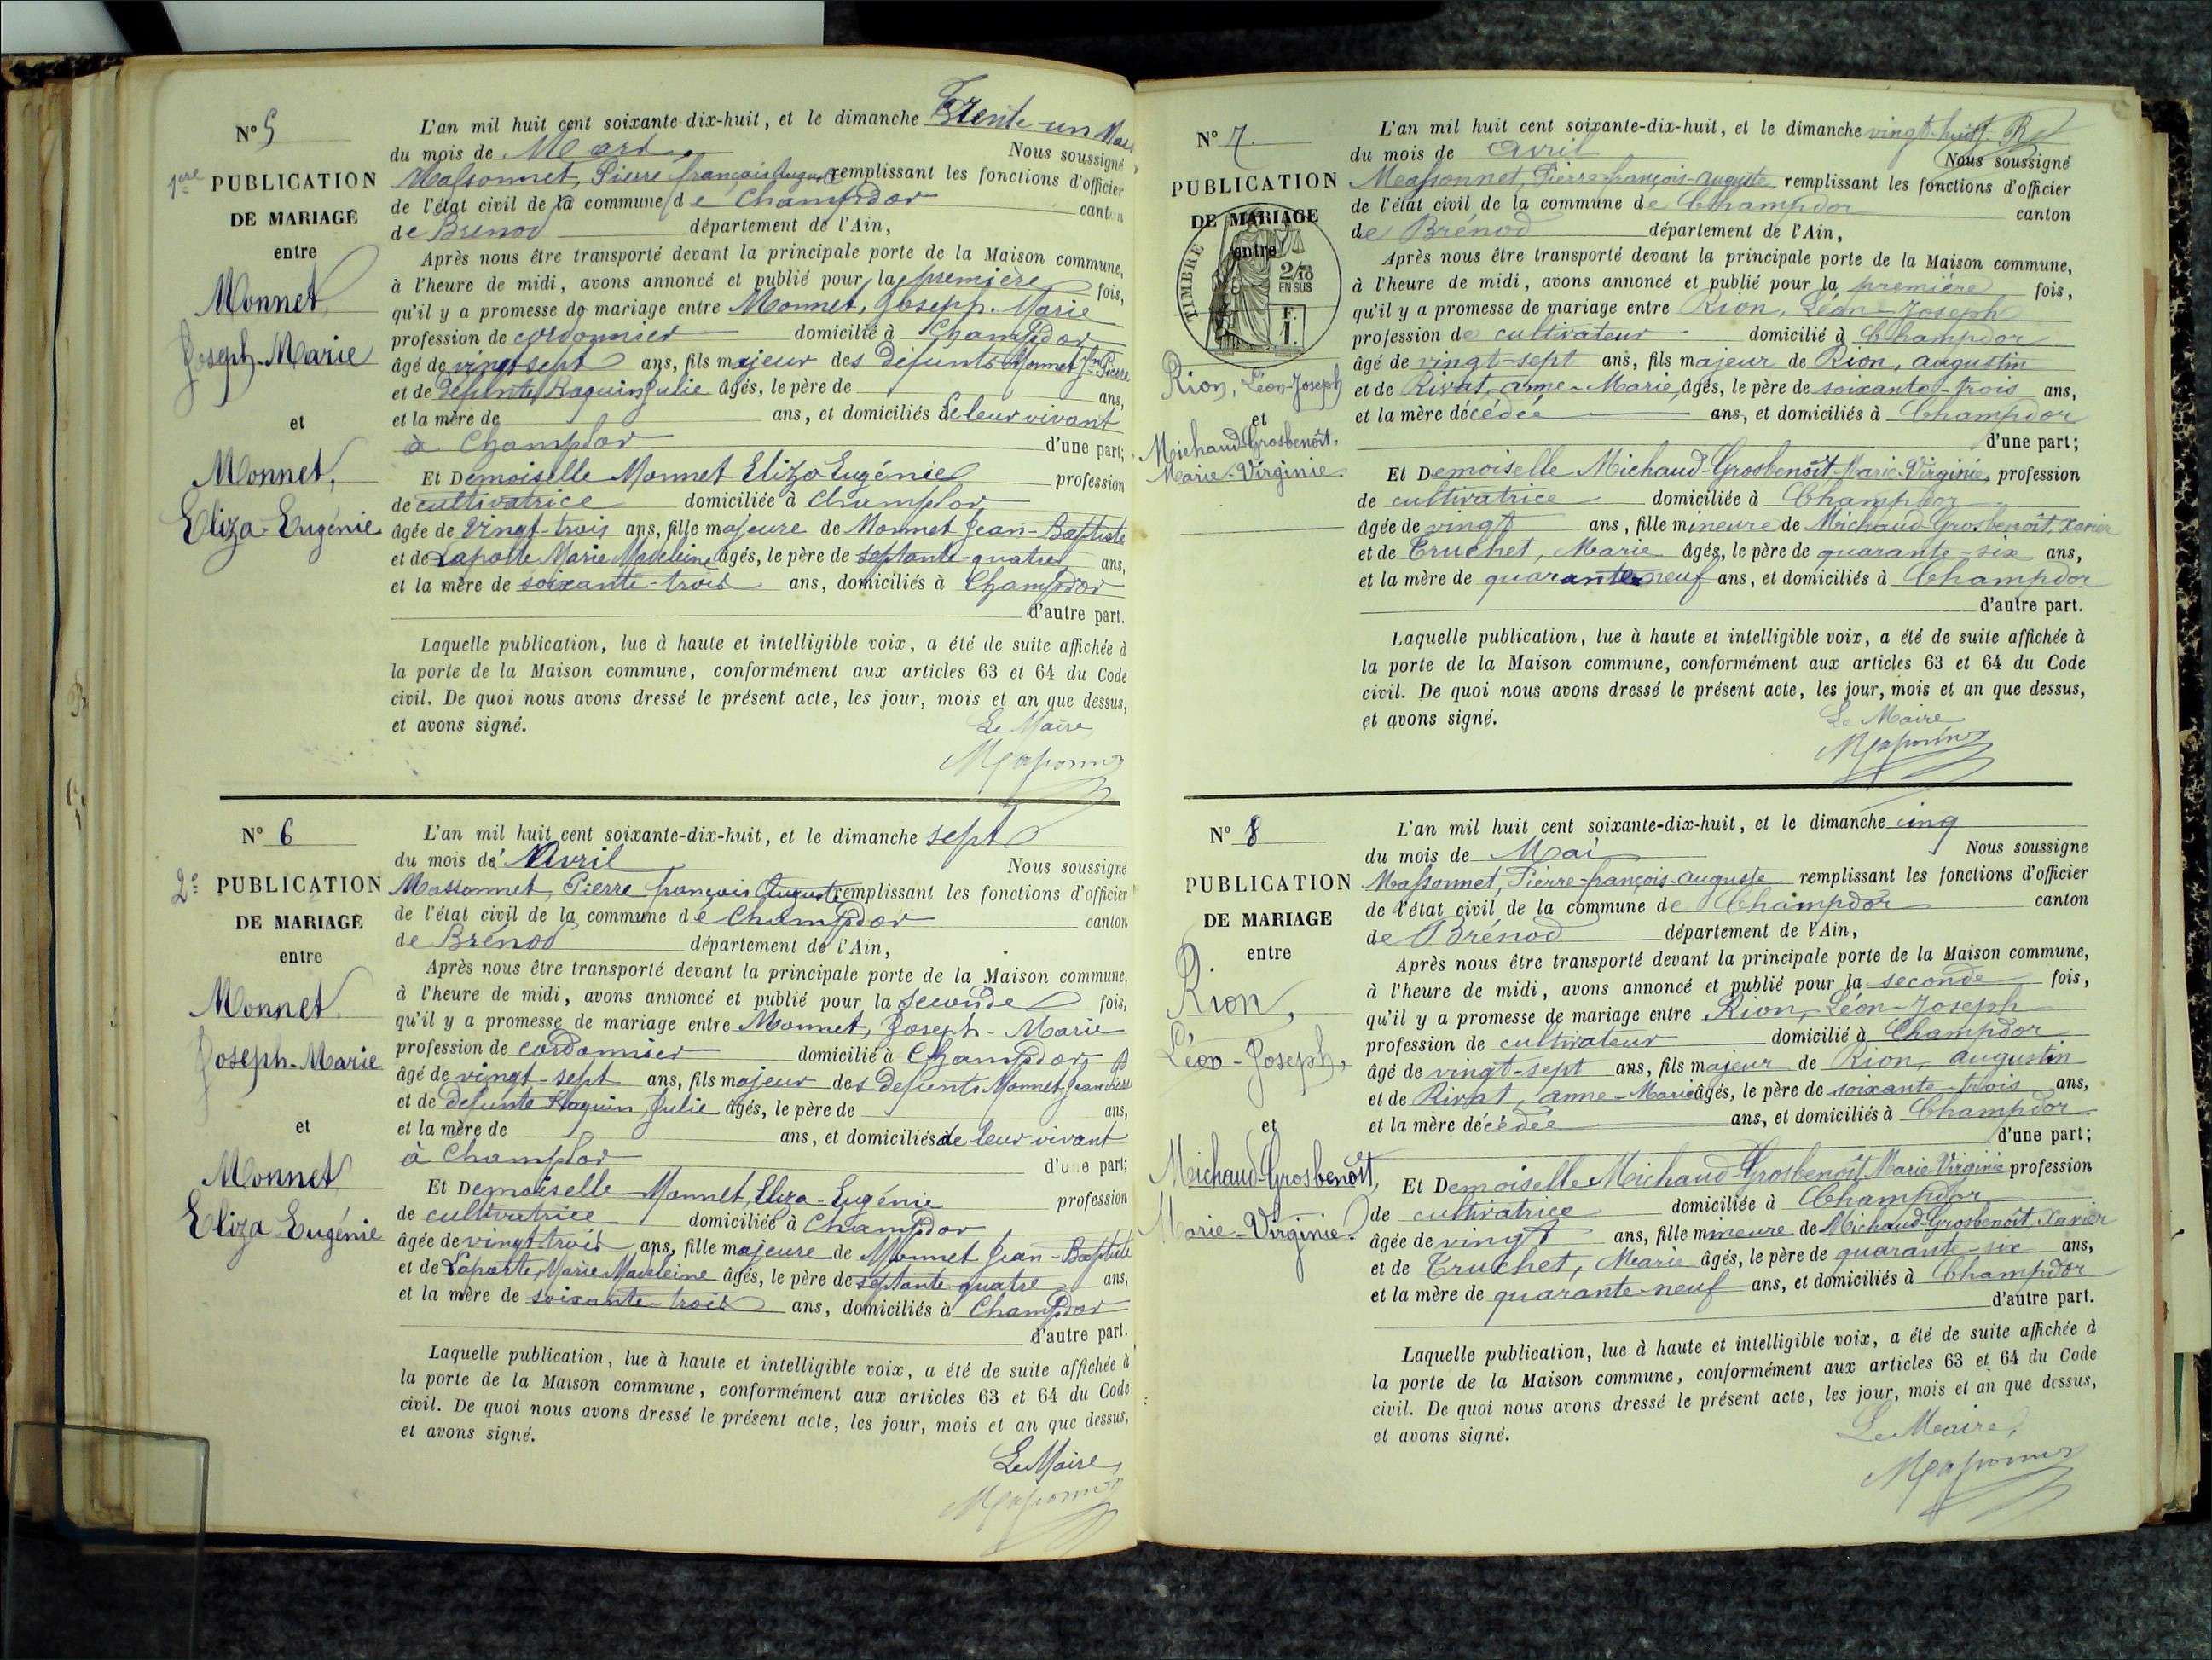 N° 5
1ere PUBLICATION
DE MARIAGE
entre
Monnet
Joseph-Marie
et
Monnet,
Eliza-Eugénie
L'an mil huit cent soixante-dix-huit, et le dimanche Trente-un
du mois de Mars Nous soussigné
Massonnet, Pierre françois Auguste remplissant les fonctions d'officier
de l'état civil de la commune de Champdor canton
de Brénod département de l'Ain,
Après nous être transporté devant la principale porte de la Maison commune,
à l'heure de midi, avons annoncé et publié pour la première fois,
qu'il y a promesse de mariage entre Monnet, Joseph-Marie
profession de cordonnier domicilié à Champdor
âgé de vingt-sept ans, fils majeur des défunts Monnet Pierre
et de défunte Raquin Julie âgés, le père de ans,
et la mère de ans, et domiciliés de leur vivant
à Champdor d'une part;
Et Demoiselle Monnet Eliza Eugénie profession
de cultivatrice domiciliée à Champdor
âgée de vingt-trois ans, fille majeure de Monnet Jean-Baptiste
et de Laporte Marie Madeleine âgés, le père de septante-quatre ans,
et la mère de soixante-trois ans, domiciliés à Champdor
d'autre part.
Laquelle publication, lue à haute et intelligible voix, a été de suite affichée à
la porte de la Maison commune, conformément aux articles 63 et 64 du Code
civil. De quoi nous avons dressé le présent acte, les jour, mois et an que dessus,
et avons signé.
Le Maire
Massonnet
N° 6
2e PUBLICATION
DE MARIAGE
entre
Monnet
Joseph-Marie
et
Monnet
Eliza-Eugénie
L'an mil huit cent soixante-dix-huit, et le dimanche sept
du mois de Avril Nous soussigné
Massonnet, Pierre françois Auguste remplissant les fonctions d'officier
de l'état civil de la commune de Champdor canton
de Brénod département de l'Ain,
Après nous être transporté devant la principale porte de la Maison commune,
à l'heure de midi, avons annoncé et publié pour la seconde fois,
qu'il y a promesse de mariage entre Monnet, Joseph-Marie
profession de cordonnier domicilié à Champdor
âgé de vingt-sept ans, fils majeur des défunts Monnet
et de défunte Raquin Julie âgés, le père de ans,
et la mère de ans, et domiciliés de leur vivant
à Champdor d'une part;
Et Demoiselle Monnet, Eliza-Eugénie profession
de cultivatrice domiciliée à Champdor
âgée de vingt-trois ans, fille majeure de Monnet Jean-Baptiste
et de Laporte, Marie Madeleine âgés, le père de septante-quatre ans,
et la mère de soixante-trois ans, domiciliés à Champdor
d'autre part.
Laquelle publication, lue à haute et intelligible voix, a été de suite affichée à
la porte de la Maison commune, conformément aux articles 63 et 64 du Code
civil. De quoi nous avons dressé le présent acte, les jour, mois et an que dessus,
et avons signé.
Le Maire,
Massonnet
N° 7.
PUBLICATION
DE MARIAGE
entre
TIMBRE
2/10
EN SUS
F.
1.
Rion, Léon-Joseph
et
Michaud-Grosbenoît,
Marie-Virginie.
L'an mil huit cent soixante-dix-huit, et le dimanche vingt-huit
du mois de avril Nous soussigné
Massonnet, Pierre-françois-auguste remplissant les fonctions d'officier
de l'état civil de la commune de Champdor canton
de Brénod département de l'Ain,
Après nous être transporté devant la principale porte de la Maison commune,
à l'heure de midi, avons annoncé et publié pour la première fois,
qu'il y a promesse de mariage entre Rion, Léon-Joseph
profession de cultivateur domicilié à Champdor
âgé de vingt-sept ans, fils majeur de Rion, augustin
et de Rivat, anne-Marie, âgés, le père de soixante-trois ans,
et la mère décédée ans, et domiciliés à Champdor
d'une part;
Et Demoiselle Michaud-Grosbenoît Marie-Virginie, profession
de cultivatrice domiciliée à Champdor
âgée de vingt ans, fille mineure de Michaud-Grosbenoît, Xavier
et de Truchet, Marie âgés, le père de quarante-six ans,
et la mère de quarante-neuf ans, et domiciliés à Champdor
d'autre part.
Laquelle publication, lue à haute et intelligible voix, a été de suite affichée à
la porte de la Maison commune, conformément aux articles 63 et 64 du Code
civil. De quoi nous avons dressé le présent acte, les jour, mois et an que dessus,
et avons signé.
Le Maire
Massonnet
N° 8
PUBLICATION
DE MARIAGE
entre
Rion,
Léon-Joseph,
et
Michaud-Grosbenoît,
Marie-Virginie.
L'an mil huit cent soixante-dix-huit, et le dimanche cinq
du mois de Mai Nous soussigné
Massonnet, Pierre-françois-auguste remplissant les fonctions d'officier
de l'état civil de la commune de Champdor canton
de Brénod département de l'Ain,
Après nous être transporté devant la principale porte de la Maison commune,
à l'heure de midi, avons annoncé et publié pour la seconde fois,
qu'il y a promesse de mariage entre Rion, Léon-Joseph
profession de cultivateur domicilié à Champdor
âgé de vingt-sept ans, fils majeur de Rion, augustin
et de Rivat, anne-Marie âgés, le père de soixante-trois ans,
et la mère décédée ans, et domiciliés à Champdor
d'une part;
Et Demoiselle Michaud-Grosbenoît Marie-Virginie profession
de cultivatrice domiciliée à Champdor
âgée de vingt ans, fille mineure de Michaud-Grosbenoît Xavier
et de Truchet, Marie âgés, le père de quarante-six ans,
et la mère de quarante-neuf ans, et domiciliés à Champdor
d'autre part.
Laquelle publication, lue à haute et intelligible voix, a été de suite affichée à
la porte de la Maison commune, conformément aux articles 63 et 64 du Code
civil. De quoi nous avons dressé le présent acte, les jour, mois et an que dessus,
et avons signé.
Le Maire,
Massonnet